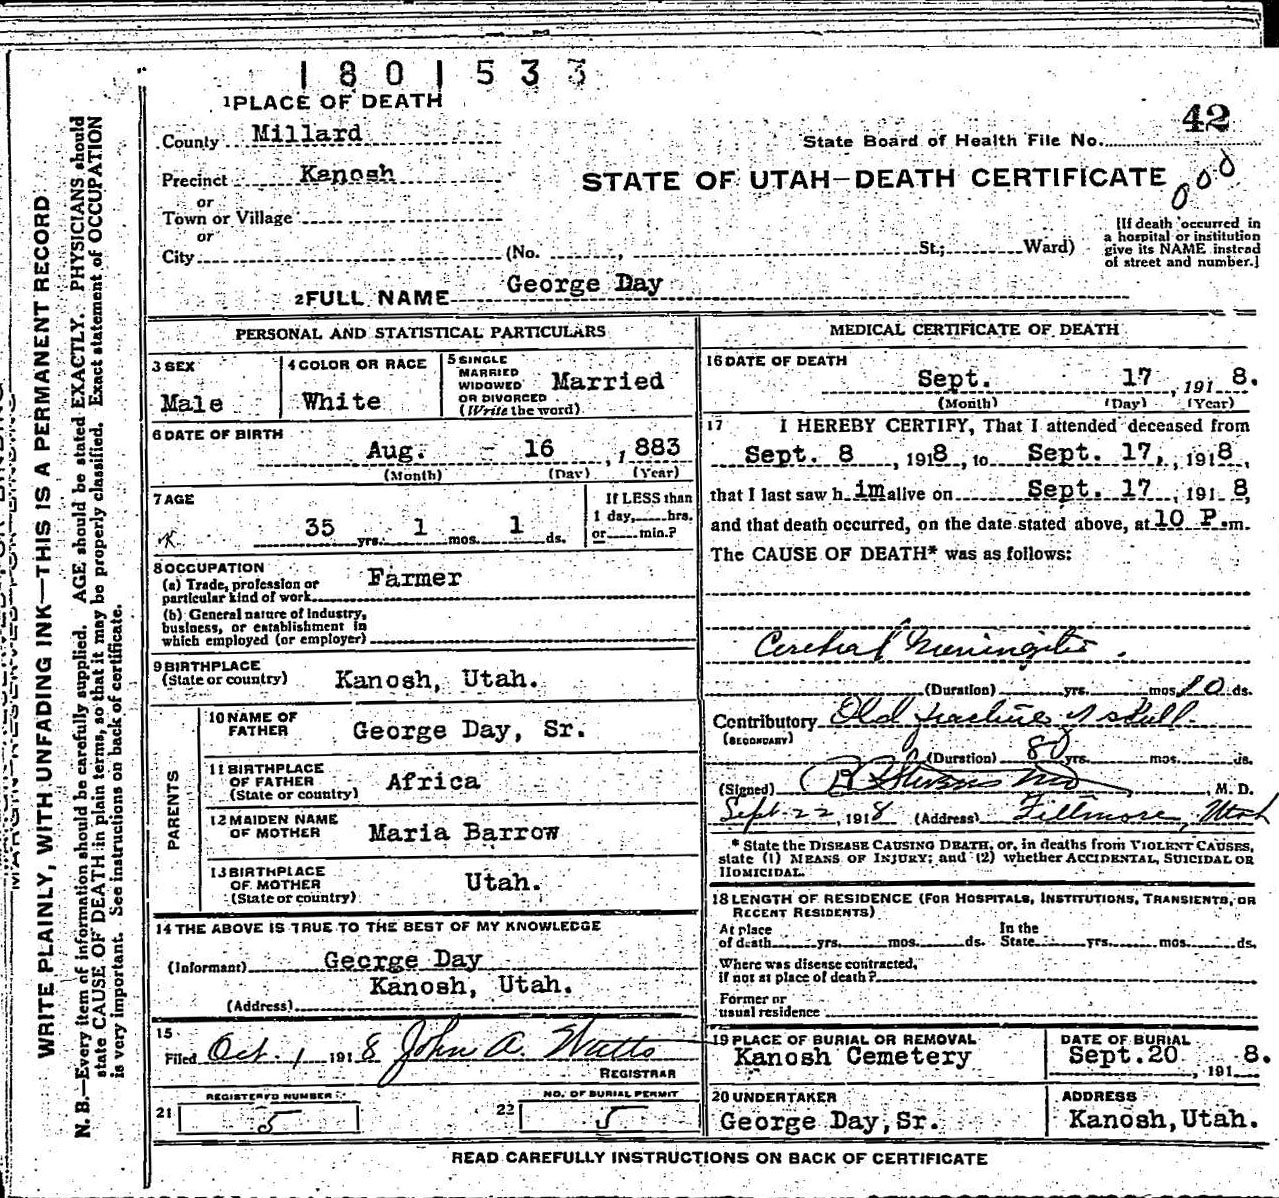 1801533
1 PLACE OF DEATH
County Millard
State Board of Health File No. 42
Precinct Kanosh
STATE OF UTAH—DEATH CERTIFICATE
000
or
Town or Village
or
City (No. , St; Ward)
[If death occurred in
a hospital or institution
give its NAME instead
of street and number.]
2 FULL NAME George Day
PERSONAL AND STATISTICAL PARTICULARS
3 SEX
Male
4 COLOR OR RACE
White
5 SINGLE
MARRIED
WIDOWED
OR DIVORCED
(Write the word)
Married
6 DATE OF BIRTH
Aug. - 16 , 1883
(Month) (Day) (Year)
7 AGE
35 yrs. 1 mos. 1 ds.
If LESS than
1 day, hrs.
or min.?
8 OCCUPATION
(a) Trade, profession or
particular kind of work Farmer
(b) General nature of industry,
business, or establishment in
which employed (or employer)
9 BIRTHPLACE
(State or country) Kanosh, Utah.
PARENTS
10 NAME OF
FATHER George Day, Sr.
11 BIRTHPLACE
OF FATHER
(State or country) Africa
12 MAIDEN NAME
OF MOTHER Maria Barrow
13 BIRTHPLACE
OF MOTHER
(State or country) Utah.
14 THE ABOVE IS TRUE TO THE BEST OF MY KNOWLEDGE
(Informant) George Day
(Address) Kanosh, Utah.
15
Filed Oct. 1, 1918 John A. Watts
REGISTRAR
REGISTERED NUMBER
21 5
NO. OF BURIAL PERMIT
22 5
MEDICAL CERTIFICATE OF DEATH
16 DATE OF DEATH
Sept. 17 , 1918.
(Month) (Day) (Year)
17 I HEREBY CERTIFY, That I attended deceased from
Sept. 8 , 1918, to Sept. 17, , 1918,
that I last saw him alive on Sept. 17 , 1918,
and that death occurred, on the date stated above, at 10 P.m.
The CAUSE OF DEATH* was as follows:
Cerebral Meningitis.
(Duration) yrs. mos. 10 ds.
Contributory Old fracture of skull.
(SECONDARY)
(Duration) yrs. mos. ds.
(Signed) Stevens MD , M. D.
Sept 22, 1918 (Address) Fillmore, Utah
* State the DISEASE CAUSING DEATH, or, in deaths from VIOLENT CAUSES,
state (1) MEANS OF INJURY; and (2) whether ACCIDENTAL, SUICIDAL OR
HOMICIDAL.
18 LENGTH OF RESIDENCE (FOR HOSPITALS, INSTITUTIONS, TRANSIENTS, OR
RECENT RESIDENTS)
At place
of death yrs. mos. ds.
In the
State yrs. mos. ds.
Where was disease contracted,
if not at place of death?
Former or
usual residence
19 PLACE OF BURIAL OR REMOVAL
Kanosh Cemetery
DATE OF BURIAL
Sept.20 , 1918.
20 UNDERTAKER
George Day, Sr.
ADDRESS
Kanosh, Utah.
READ CAREFULLY INSTRUCTIONS ON BACK OF CERTIFICATE
WRITE PLAINLY, WITH UNFADING INK—THIS IS A PERMANENT RECORD
N. B.—Every item of information should be carefully supplied. AGE should be stated EXACTLY. PHYSICIANS should
state CAUSE OF DEATH in plain terms, so that it may be properly classified. Exact statement of OCCUPATION
is very important. See instructions on back of certificate.